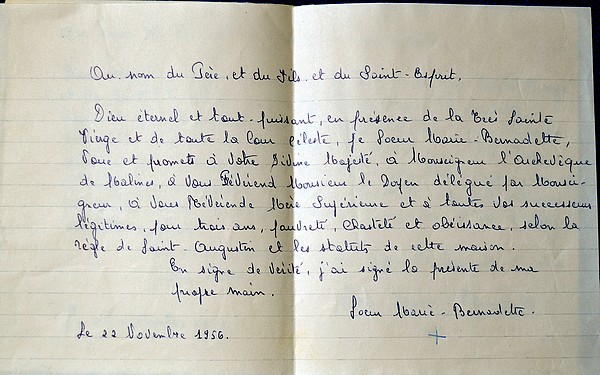 Au nom du Père, et du Fils et du Saint-Esprit,
Dieu éternel et tout-puissant, en présence de la Très Sainte
Vierge et de toute la Cour céleste, Je Soeur Marie-Bernadette,
Voue et promets à Votre Divine Majesté, à Monseigneur l'Archevêque
de Malines, à Vous Révérend Monsieur le Doyen délégué par Monsei-
gneur, à Vous Révérende Mère Supérieure et à toutes vos successeurs
légitimes, pour trois ans, pauvreté, Chasteté et obéissance, selon la
règle de Saint-Augustin et les statuts de cette maison.
En signe de vérité, j'ai signé la présente de ma
propre main.
Soeur Marie-Bernadette.
Le 22 Novembre 1956.